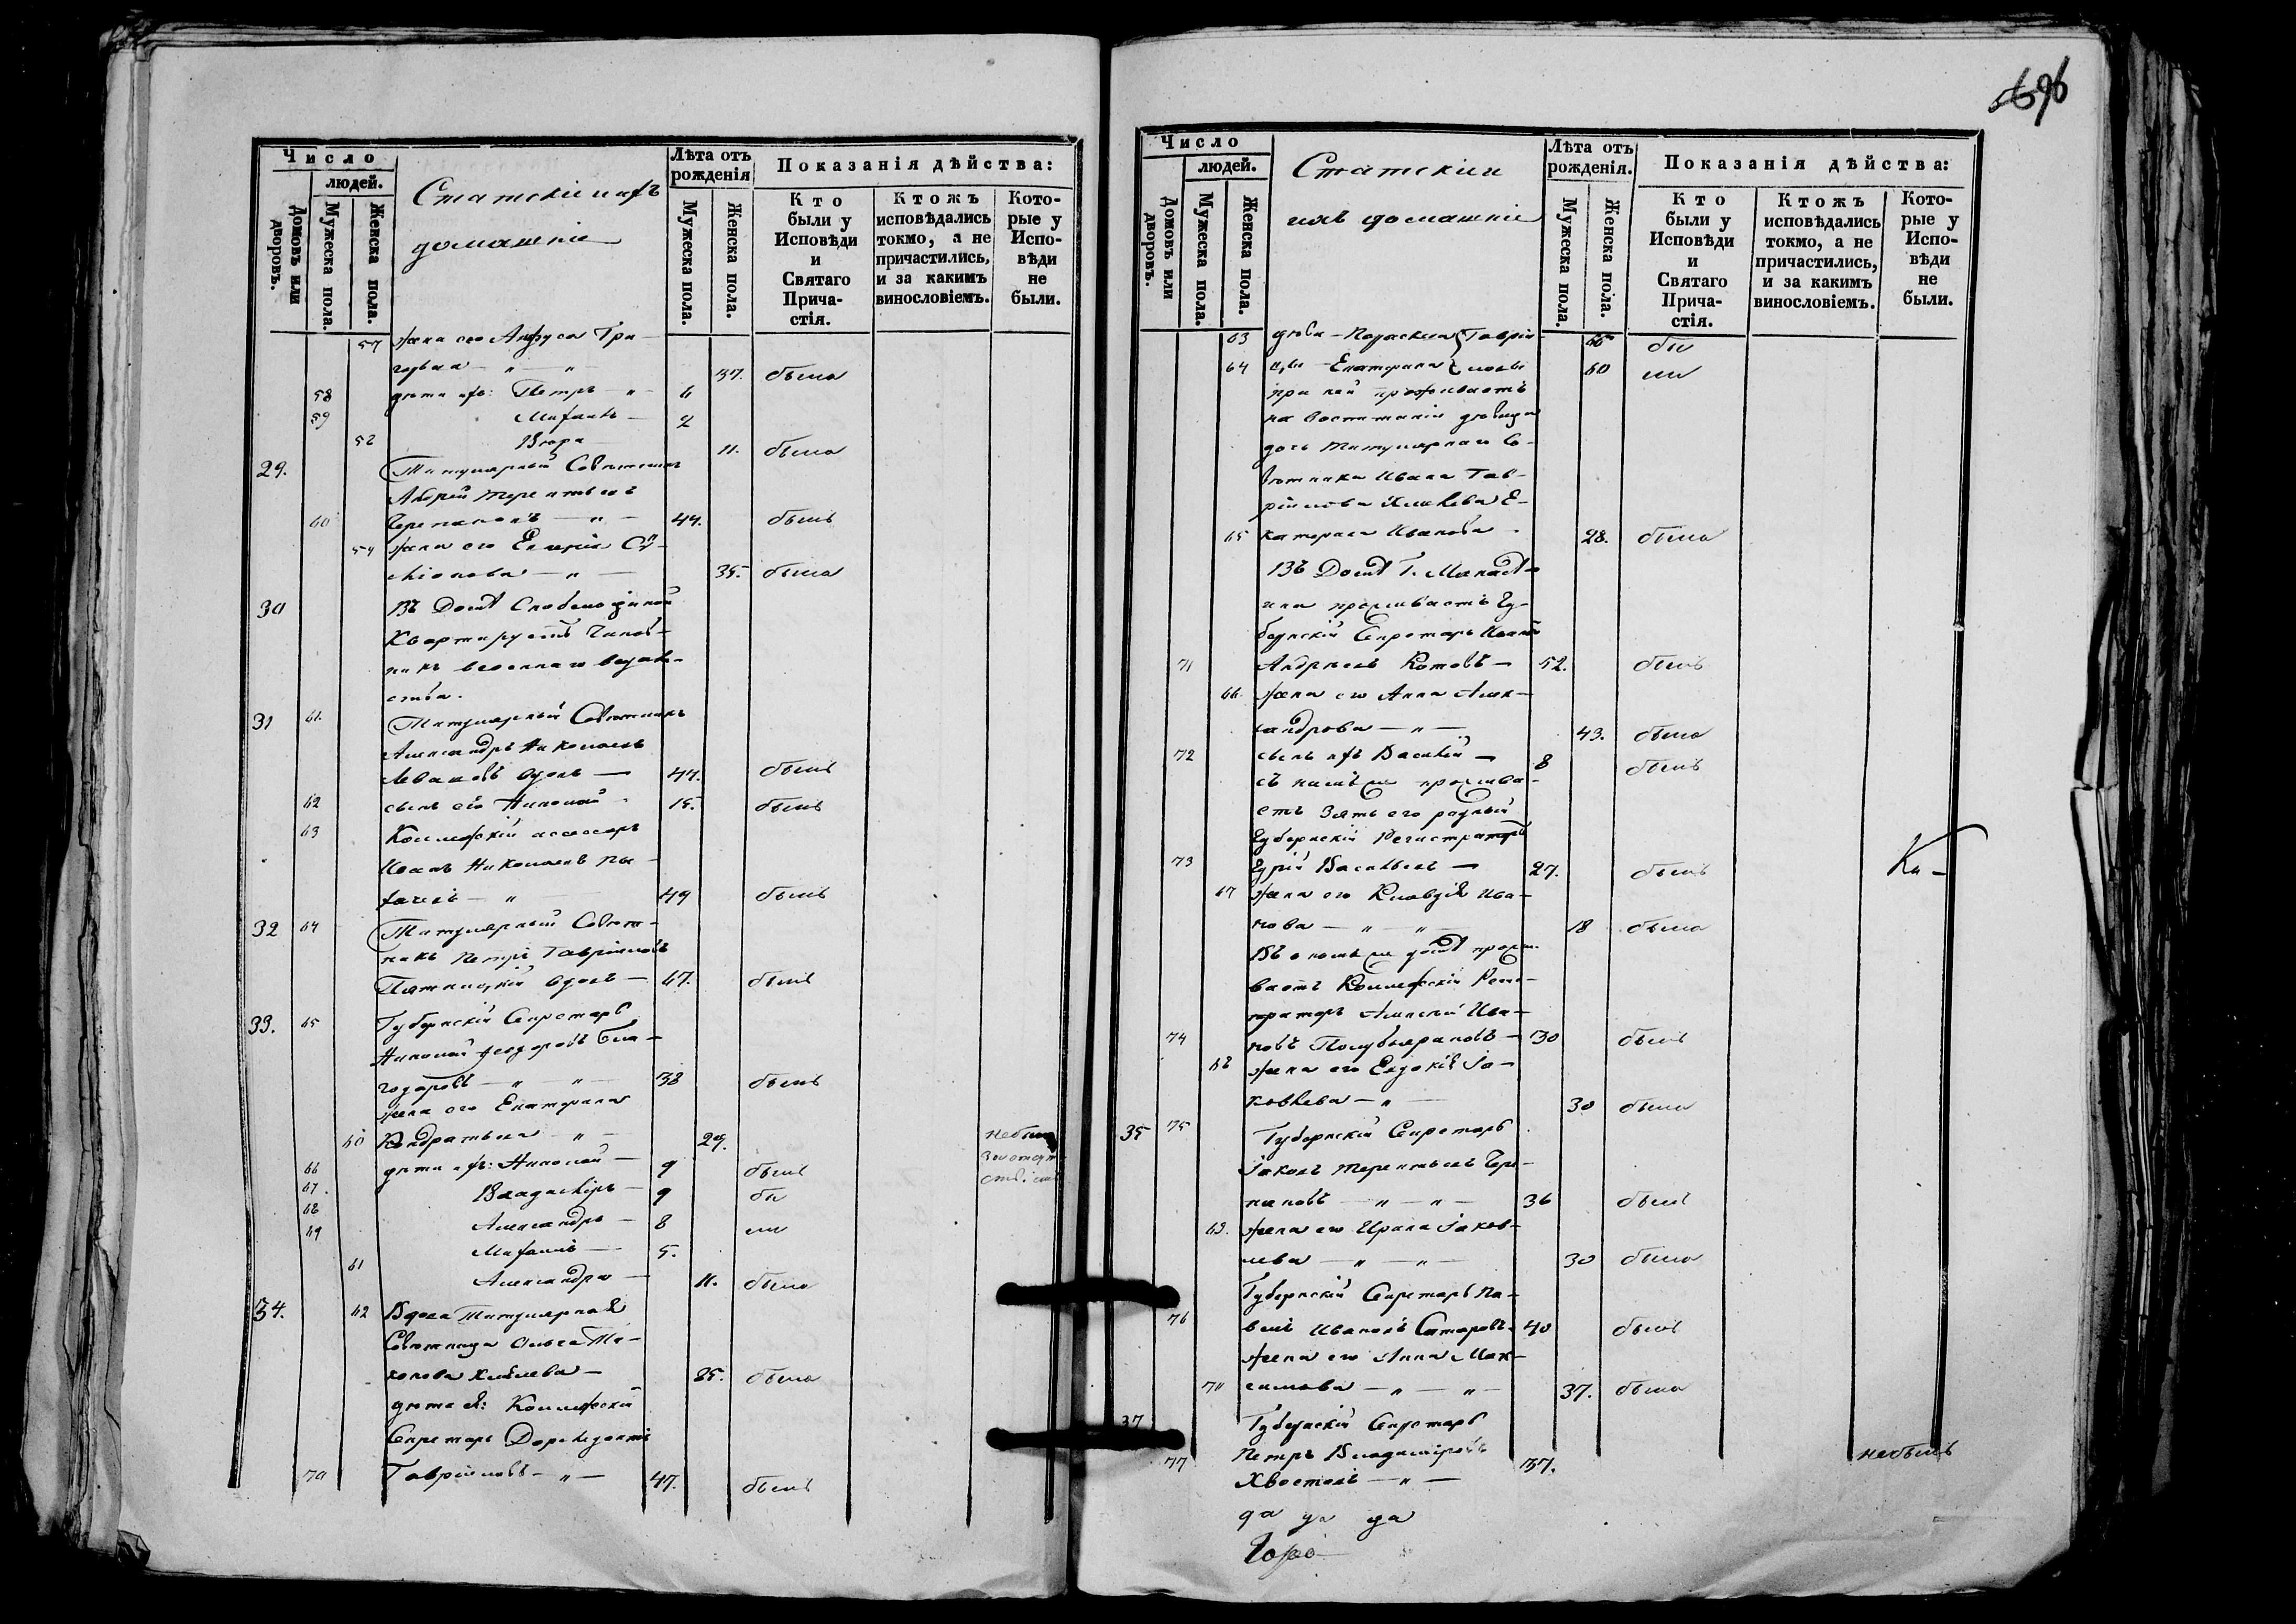 Число
людей.
Домовъ или дворовъ.
Мужеска пола.
Женска пола.
Статскіе и ихъ
домашніе
Лѣта отъ рожденія
Мужеска пола.
Женска пола.
Показанія дѣйства:
Кто были у Исповѣди и Святаго Прича-стія.
Ктожъ исповѣдались токмо, а не причастились, и за какимъ винословіемъ.
Кото-рые у Испо-вѣди не были.
57 жена его Анфуса Гри-
горьева — " — " 37. была
58 дѣти ихъ: Петръ — " — 6
59 Михаилъ — 2
Вѣра — 11. была
29. Титулярный Совѣтникъ
Андрей Терентьевъ
60 Черепановъ — " — 44. былъ
жена его Евгенія
35. была
30 Въ Домѣ
Квартируетъ Чинов-
никъ военнаго вѣдом-
ства.
31 61. Титулярный Совѣтникъ
Александръ Николаевъ
вдовъ — 47. былъ
62 сынъ его Николай — 15. былъ
63 Коллежскій ассесоръ
Иванъ Николаевъ Пы-
хачевъ — " — 49 былъ
32 64 Титулярный Совѣт-
никъ Петръ Гавріиловъ
Пятницкій вдовъ — 47. былъ
33. 65 Губернскій Секретарь
Николай Ѳедоровъ Бла-
годаровъ — " — " — 38 былъ
жена его Екатерина
60 Кондратьева — " — 29. небыла
за отсут-
ствіемъ
66 дѣти ихъ: Николай — 9 былъ
67. Владиміръ — 9 бы
68 Александръ — 8 ли
69 Михаилъ — 5.
61 Александра — 11. была
34. 62 Вдова Титулярная
Совѣтница Ольга Ти-
хонова — 85. была
дѣти ея: Коллежскій
Секретарь Доримедонтъ
70 Гавріиловъ — " — 47. былъ
696
Число
людей.
Домовъ или дворовъ.
Мужеска пола.
Женска пола.
Статскіе и
ихъ домашніе
Лѣта отъ рожденія.
Мужеска пола.
Женска пола.
Показанія дѣйства:
Кто были у Исповѣди и Святаго Прича-стія.
Ктожъ исповѣдались токмо, а не причастились, и за какимъ винословіемъ.
Кото-рые у Испо-вѣди не были.
63 дѣвы — Параскева Гавріи- бы
64 Екатерина ловы 60 ли
при ней проживаетъ
на воспитаніи дѣвица
дочь Титулярнаго Со-
вѣтника Ивана Гав-
ріилова Е-
65 катерина Иванова — 28. была
Въ Домѣ Г.
проживаетъ Гу-
бернскій Секретарь Иванъ
71 Андреевъ Котовъ — 52. былъ
66. жена его Анна Алек-
сандрова — " — 43. была
72 сынъ ихъ Василій — 8 былъ
съ нимъ же прожива-
етъ Зять его родный
Губернскій Регистраторъ
73 Васильевъ — 27. былъ
Ка —
67 жена его Клавдія Ива-
нова — " — " — 18 была
Въ ономъ же домѣ прожи-
ваетъ Коллежскій Реги-
страторъ Алексѣй Ива-
74 новъ — 30 былъ
68 жена его Евдокія Іа-
ковлева — " — 30 была
35 75 Губернскій Секретарь
Іаковъ Терентьевъ Чере-
пановъ — " — " — 36 былъ
69. жена его Ирина Іаков-
лева — " — " — 30 была
Губернскій Секретарь Па-
76 велъ Ивановъ 40 былъ
жена его Анна Мак-
70 симова — " — " — 37. была
37 Губернскій Секретарь
Петръ Владиміровъ
77 Хвостовъ — " — 37. небылъ
да да да